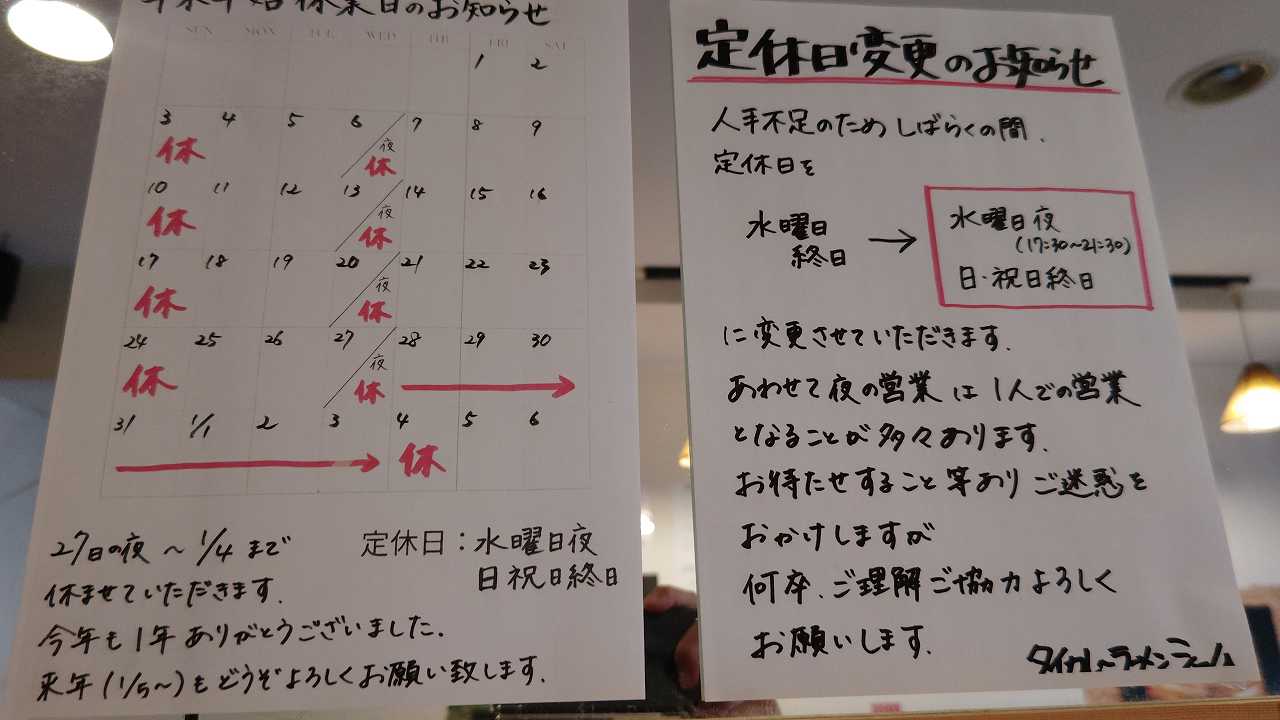 年末年始休業日のお知らせ
SUN MON TUE WED THU FRI SAT
1 2
3 4 5 6 7 8 9
休 夜休
10 11 12 13 14 15 16
休 夜休
17 18 19 20 21 22 23
休 夜休
24 25 26 27 28 29 30
休 夜休
31 1/1 2 3 4 5 6
休
27日の夜〜1/4まで
休ませていただきます.
定休日:水曜日夜
日祝日終日
今年も1年ありがとうございました.
来年(1/5〜)もどうぞよろしくお願い致します.
定休日変更のお知らせ
人手不足のためしばらくの間、
定休日を
水曜日
終日
→
水曜日夜
(17:30〜21:30)
日・祝日終日
に変更させていただきます.
あわせて夜の営業は1人での営業
となることが多々あります.
お待たせすること等ありご迷惑を
おかけしますが
何卒、ご理解ご協力よろしく
お願いします.
タイカレーラーメンシャム